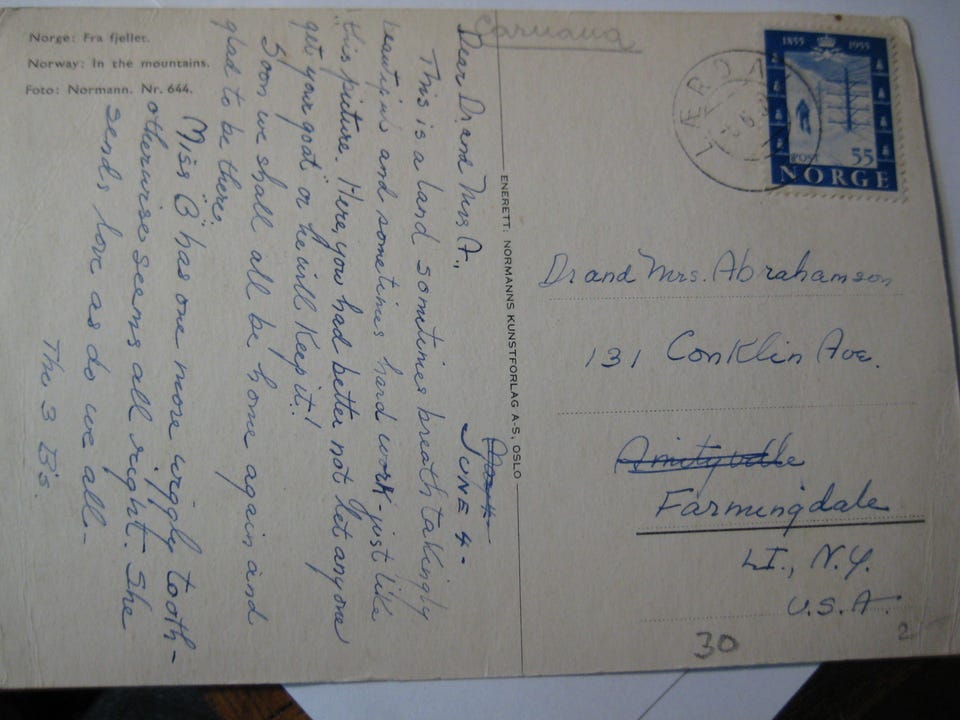 Norge: Fra fjellet.
Norway: In the mountains.
Foto: Normann. Nr. 644.
Caruana
June 4-
Dear Dr. and Mrs A.,
This is a land sometimes breathtakingly
beautiful and sometimes hard work - just like
this picture. Here, you had better not let anyone
"get your goat" or he will keep it!
Soon we shall all be home again and
glad to be there.
Miss "B" has one more wiggly tooth -
otherwise seems all right. She
sends love as do we all -
The 3 B's.
ENERETT: NORMANNS KUNSTFORLAG A-S, OSLO
LÆRDAL
1855 1955
POST 55
NORGE
Dr and Mrs. Abrahamson
131 Conklin Ave.
Amityville
Farmingdale
L.I., N.Y.
U.S.A.
30
2